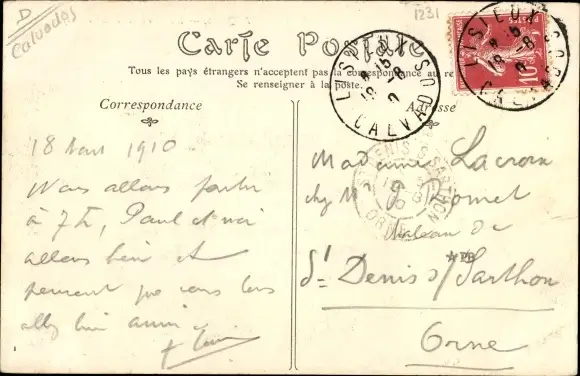 D
Calvados
1231
Carte Postale
Tous les pays étrangers n'acceptent pas la correspondance au re
Se renseigner à la poste.
Correspondance
Adresse
18 Aout 1910
Nous allons partir
à 7h, Paul et moi
allons bien et
pensent que vous tous
allez bien aussi
POSTES
10
LISIEUX
8 15
18 - 8
CALVADOS
LISIEUX
8 15
18 - 8
CALVADOS
ST DENIS S SARTHON
ORNE
Madame Lacroix
chez Mr
de
★PB
St Denis s/ Sarthon
Orne